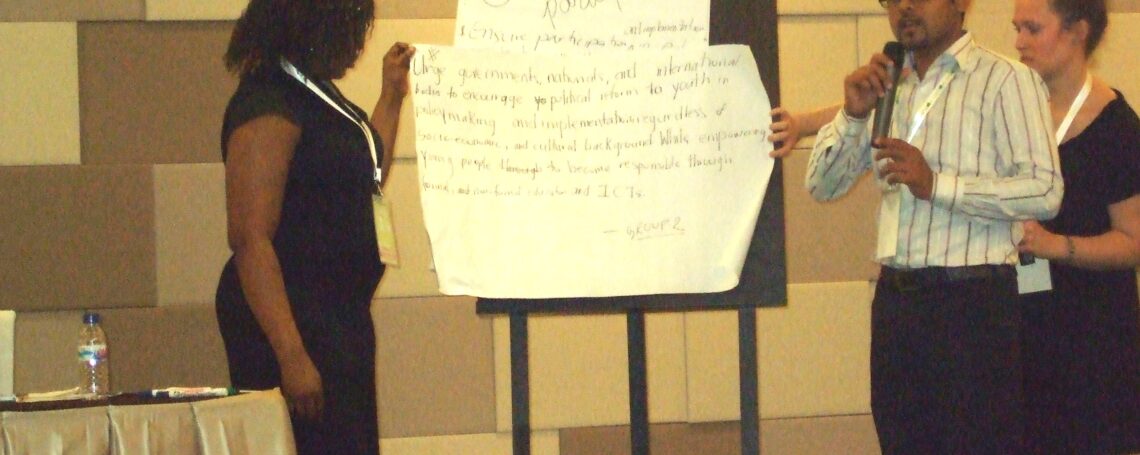 Ensure participation in
and implementation
* Urge governments, nationals, and international
bodies to encourage political reforms to youth in
policymaking and implementation regardless of
socio-economic, and cultural background whilst empowering
young people through to become responsible through
formal, and non-formal education and ICTs.
— GROUP 2